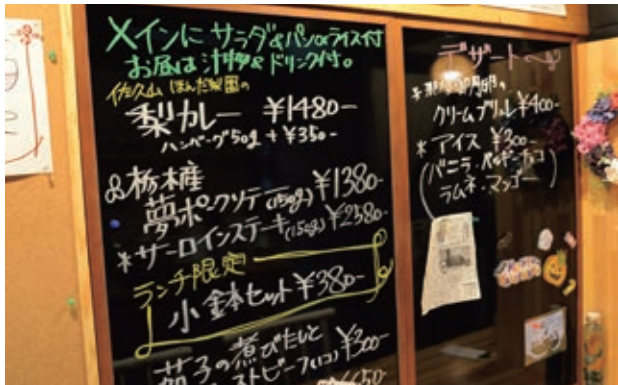 メインに サラダ&パンorライス付
お昼は汁物&ドリンク付。
佐久山 ほんだ梨園の
梨カレー ¥1480-
ハンバーグ50g + ¥350-
栃木産
夢ポークソテー(150g) ¥1380-
*サーロインステーキ(150g) ¥2380-
ランチ限定
小鉢セット ¥380-
茄子の煮びたしと
ストビーフ(1コ) ¥300-
¥650-
デザート
クリームブリュレ ¥400-
*アイス ¥300-
ラムネ・マンゴー